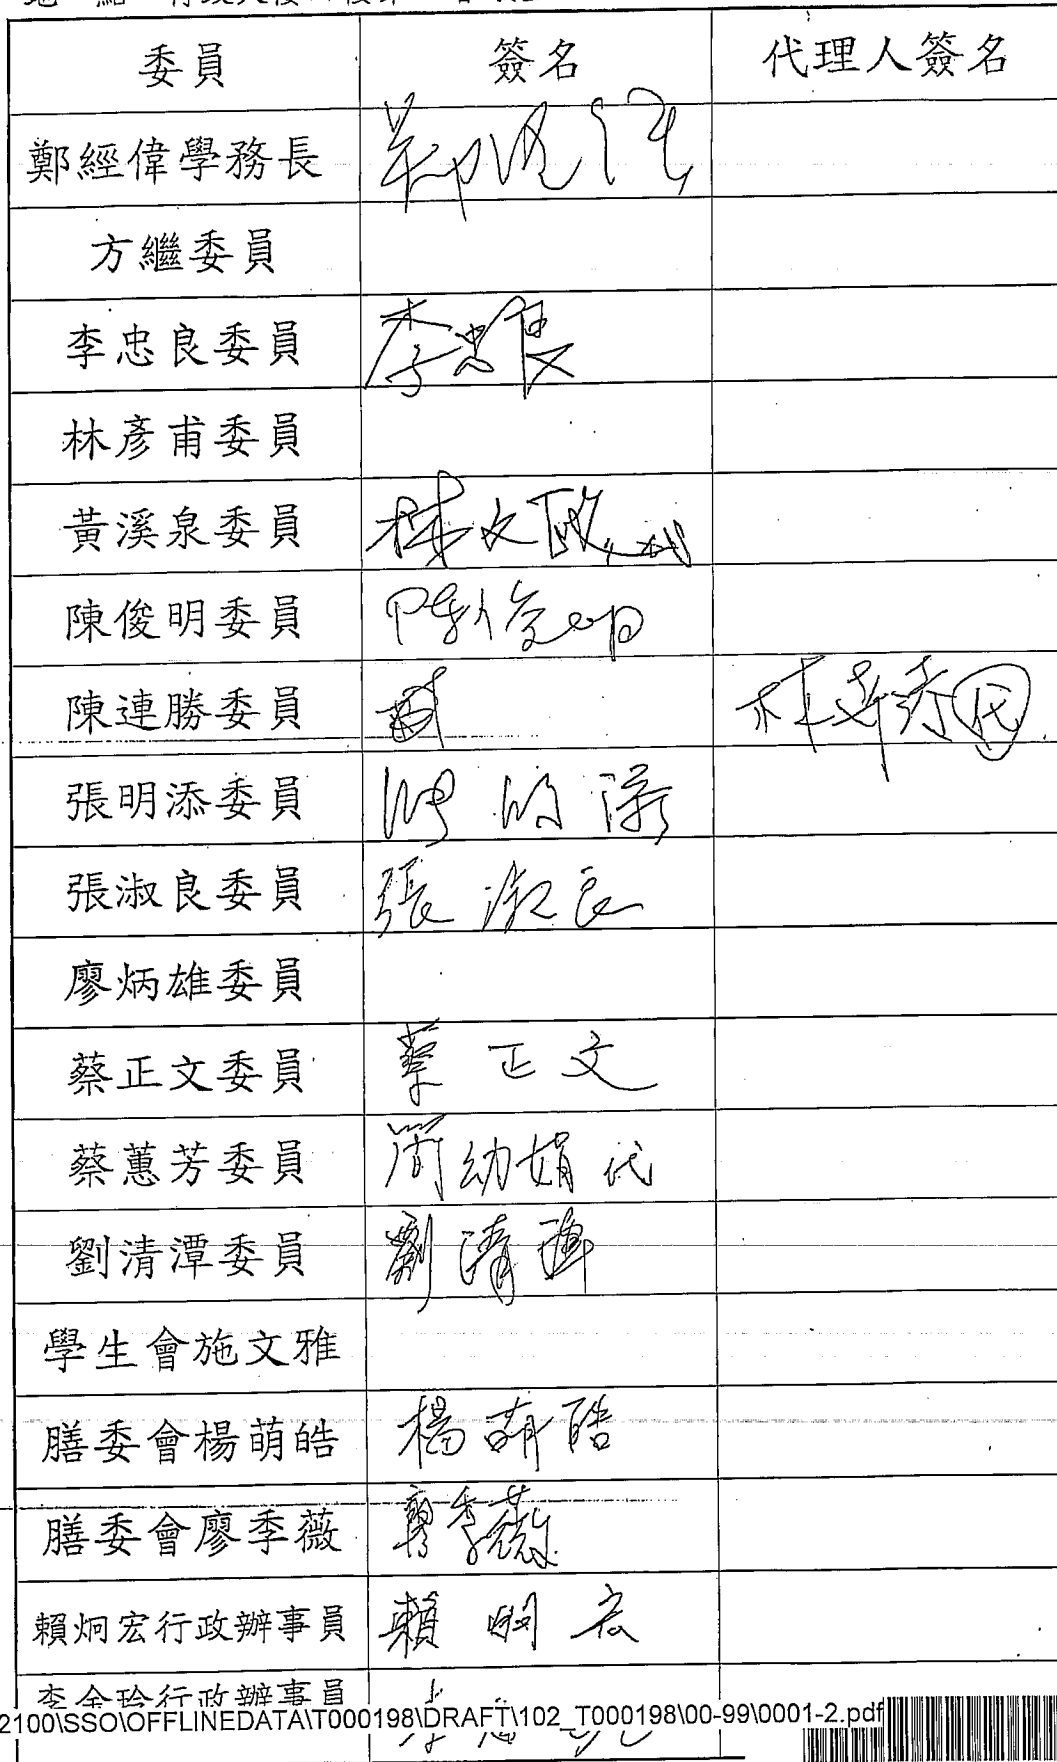 委員 簽名 代理人簽名
鄭經偉學務長
方繼委員
李忠良委員 李忠良
林彥甫委員
黃溪泉委員 林文政代
陳俊明委員 陳俊明
陳連勝委員
張明添委員 張明添
張淑良委員 張淑良
廖炳雄委員
蔡正文委員 蔡正文
蔡蕙芳委員 簡幼娟代
劉清潭委員 劉清潭
學生會施文雅
膳委會楊萌皓 楊萌皓
膳委會廖季薇 廖季薇
賴炯宏行政辦事員 賴炯宏
李金玲行政辦事員
2100\SSO\OFFLINEDATA\T000198\DRAFT\102_T000198\00-99\0001-2.pdf